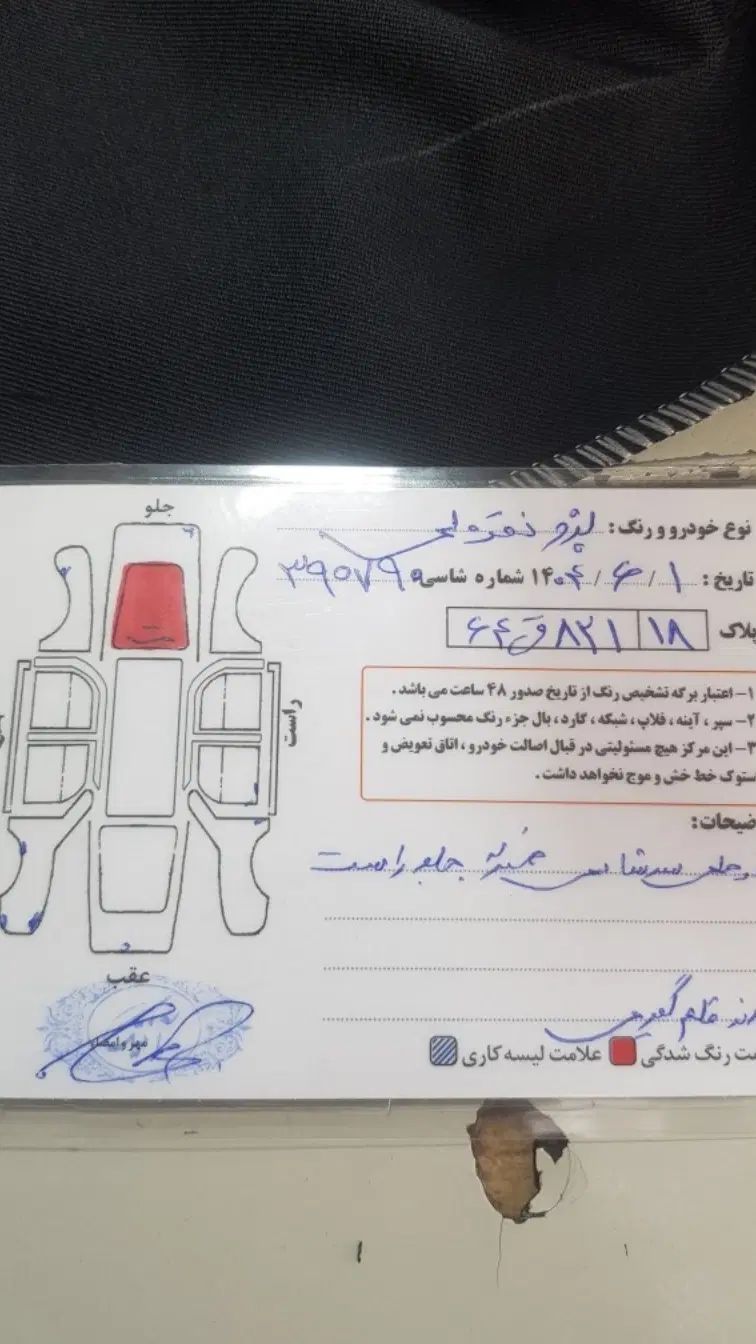 جلو
نوع خودرو و رنگ: پژو نقره‌ای
تاریخ: ۱۴۰۴/۶/۱ شماره شاسی
پلاک ۱۸ ۸۲۱ ق ۶۴
۱- اعتبار برگه تشخیص رنگ از تاریخ صدور ۴۸ ساعت می باشد.
۲- سپر، آینه، فلاپ، شبکه، گارد، بال جزء رنگ محسوب نمی شود.
۳- این مرکز هیچ مسئولیتی در قبال اصالت خودرو، اتاق تعویض و
ستوک خط خش و موج نخواهد داشت.
راست
ضیحات:
سرشاسی جلو راست
عقب
قلم گیری
مهر و امضا
ت رنگ شدگی علامت لیسه کاری